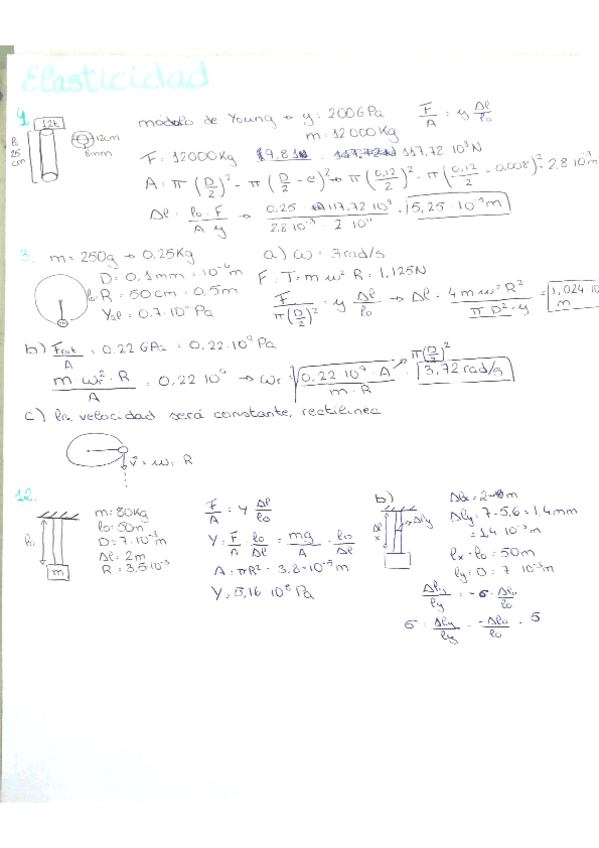 Elasticidad
1.
12t
l₀ 25 cm
12cm
8mm
módulo de Young → y = 200GPa
F/A = y Δl/l₀
m = 12000Kg
F = 12000Kg · 9.81 = 117,72 10³N
A = π (D/2)² - π (D/2 - e)² → π (0,12/2)² - π (0,12/2 - 0.008)² = 2.8 10⁻³ m
Δl = l₀ · F / A y → 0.25 · 117.72 10³ / 2.8 10⁻³ · 2 10¹¹ = 5,25 · 10⁻⁵m
3. m = 250g → 0,25Kg
D = 0,1mm = 10⁻⁴m
R = 50cm = 0,5m
Yal = 0.7 · 10¹¹ Pa
a) ω = 3rad/s
F = T = m ω² R = 1,125N
F / π(D/2)² = y Δl/l₀ → Δl = 4 m ω² R² / π D² · y = 1,024 10 m
b) Frot/A = 0.22 GPa = 0.22 · 10⁹ Pa
m ωr² · R / A = 0.22 10⁹ → ωr = √(0,22 10⁹ · A / m · R) = 3,72 rad/s
π(D/2)²
c) la velocidad será constante, rectilínea
v = ω · R
12.
l₀
m
m = 80Kg
l₀ = 50m
D = 7 · 10⁻³m
Δl = 2m
R = 3,5 · 10⁻³
F/A = y Δl/l₀
Y = F/A · l₀/Δl = mg/A · l₀/Δl
A = πR² = 3.8 · 10⁻⁵ m
Y = 5,16 10⁸ Pa
b)
Δly
Δly = 7 - 5,6 = 1,4mm
= 1,4 10⁻³m
lx = l₀ = 50m
ly = D = 7 10⁻³m
Δly/ly = -σ · Δl₀/l₀
σ = Δly/ly · -Δl₀/l₀ = 5